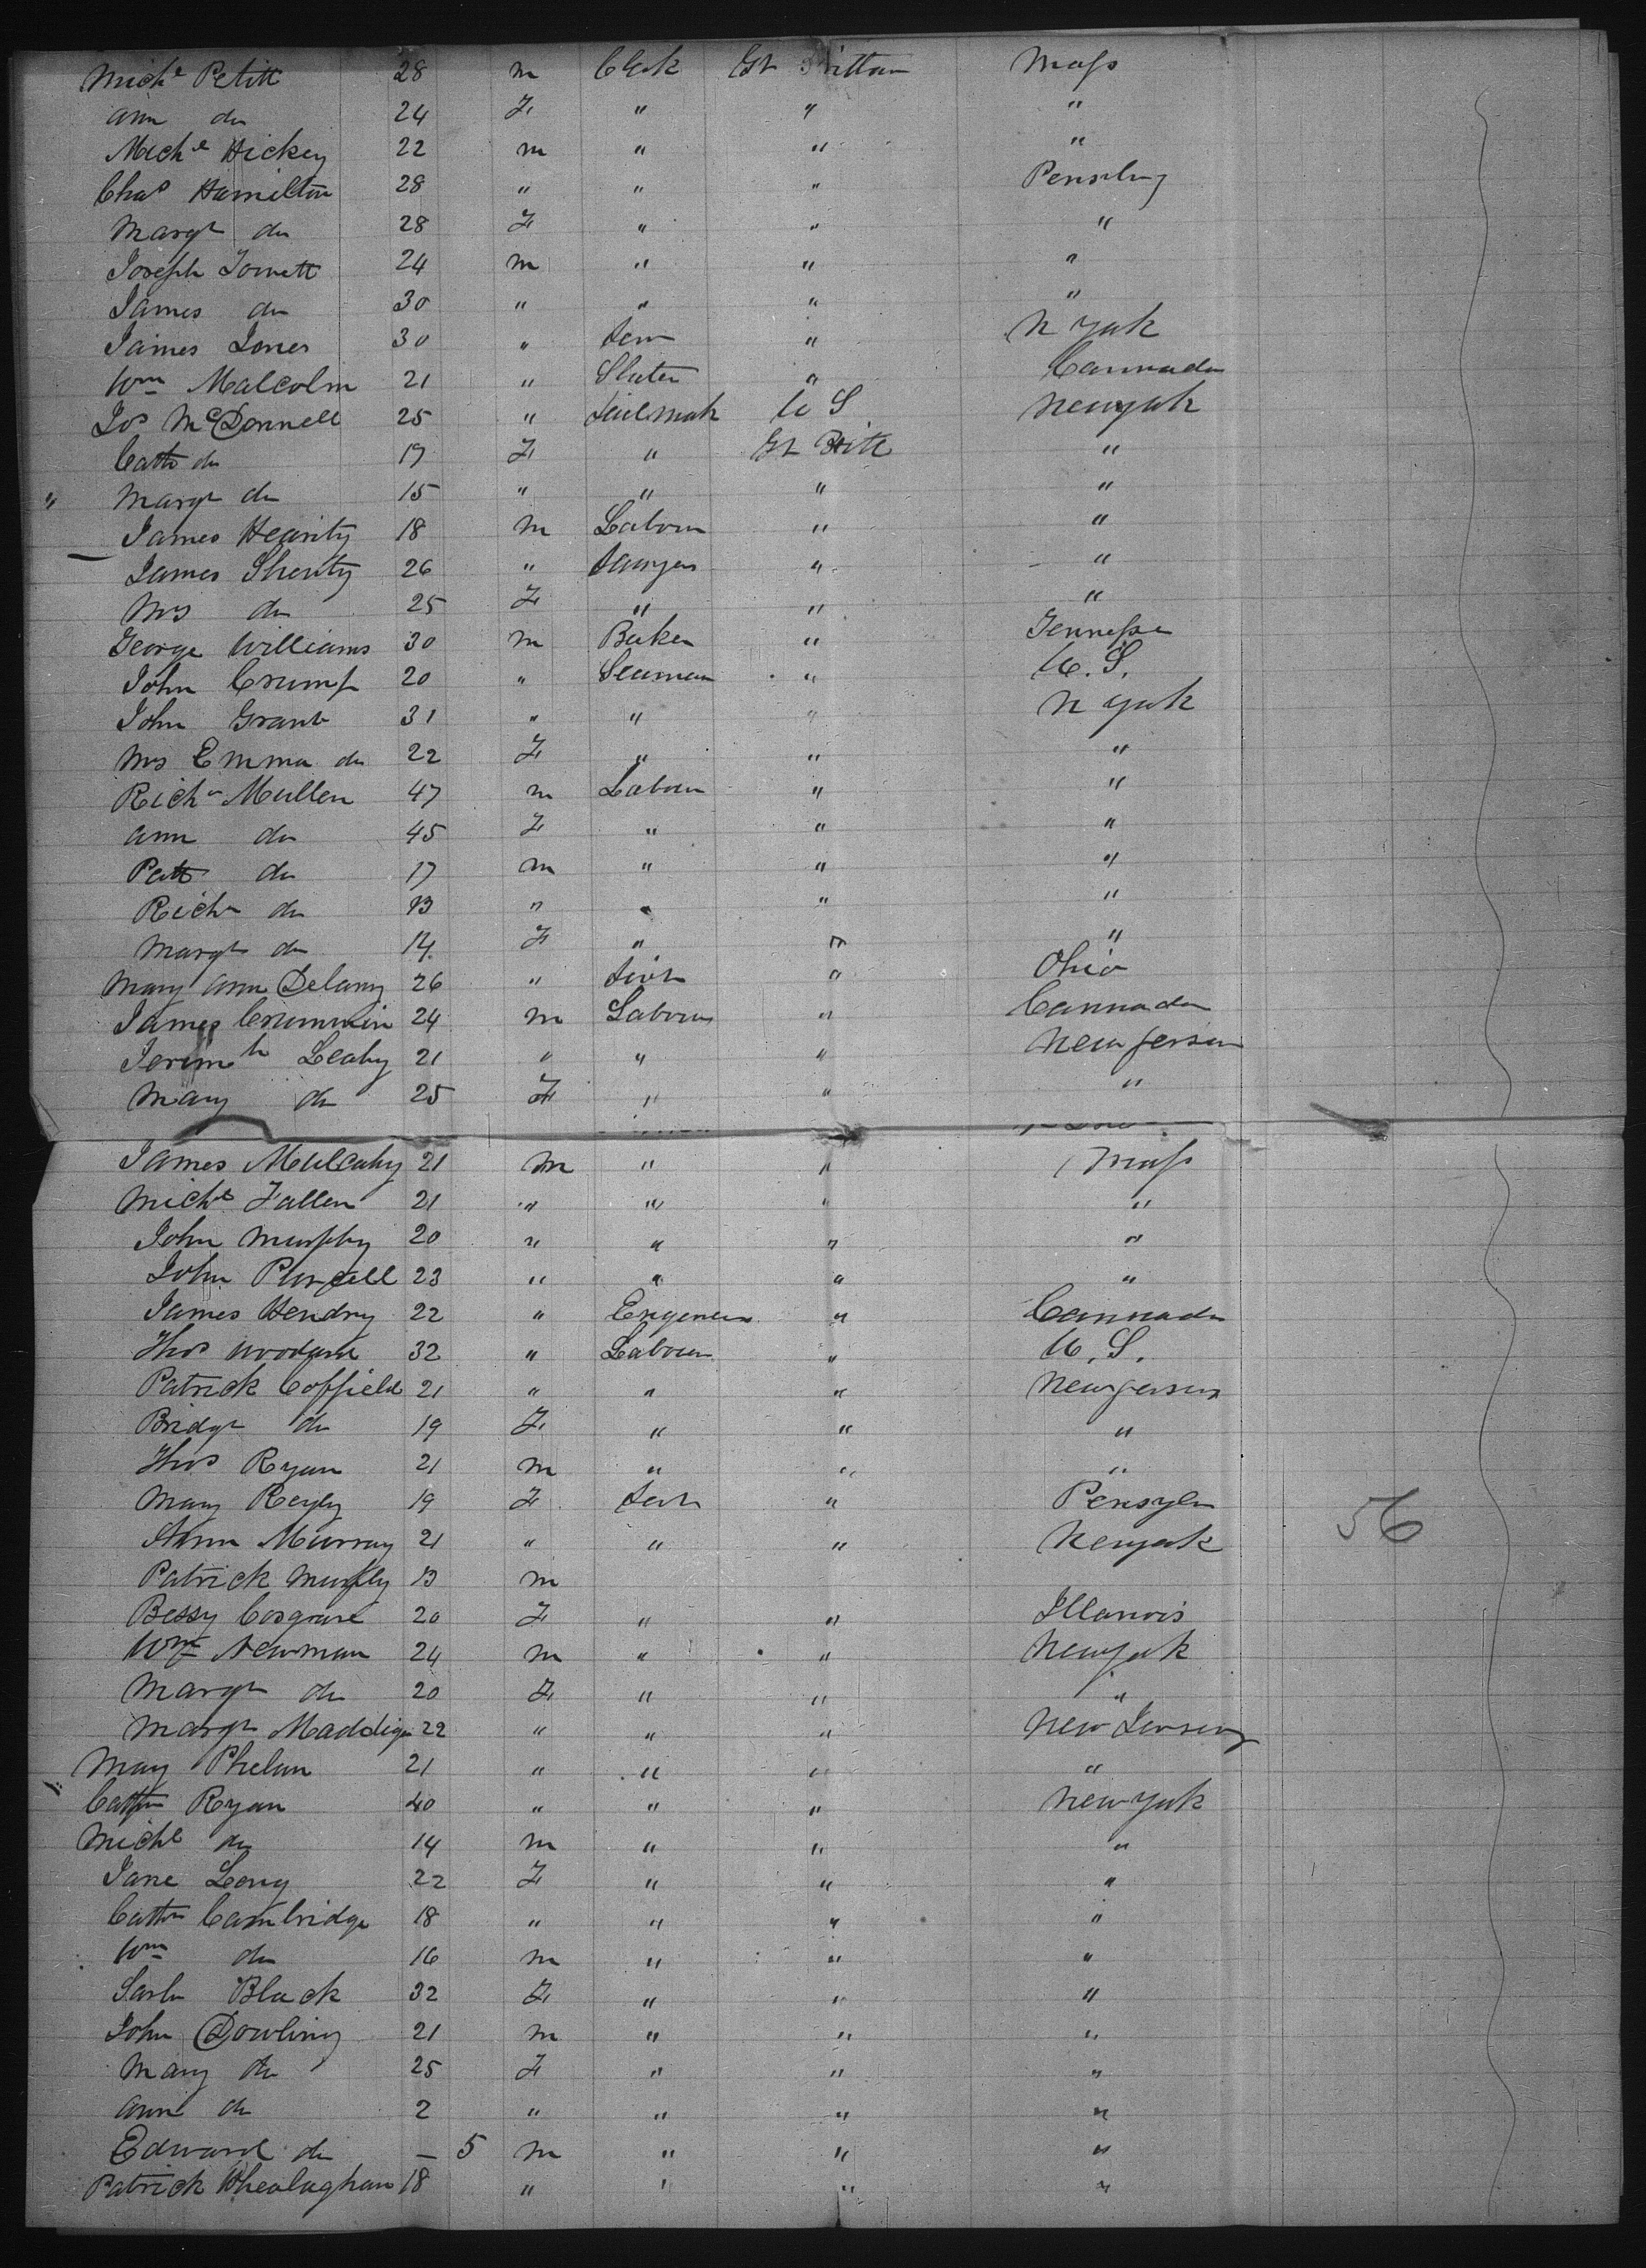 Mich<sup>l</sup> Petitt 28 m Clerk Gt Brittan Mass
Ann do 24 F " " "
Mich<sup>l</sup> Hickey 22 m " " "
Chas Hamilton 28 " " "
Margt do 28 F " " "
Joseph 24 m " " "
James do 30 " " " "
James Jones 30 " " N York
Wm Malcolm 21 " Slater " Cannada
Jos McDonnell 25 " Sailmak U S Newyork
Cath do 17 F " Gt Britt "
" Margt do 15 " " " "
James Hearity 18 m Labour " "
James 26 " Sawyer " "
Mrs do 25 F " " "
George Williams 30 m Baker " Tennesse
John Crump 20 " Seaman " U.S.
John Grant 31 " " " N York
Mrs Emma do 22 F " " "
Rich<sup>d</sup> Mullen 47 m Labour " "
Ann do 45 F " " "
Patt do 17 m " " "
Rich<sup>d</sup> do 13 " " " "
Margt do 14 F " " "
Mary Ann Delany 26 " " Ohio
James Crummin 24 m Labour " Cannada
Jerim<sup>h</sup> Leahy 21 " " " New Jersey
Mary do 25 F " " "
James Mulcahy 21 m " " Mass
Mich<sup>l</sup> Fallen 21 " " " "
John Murphy 20 " " " "
John Purcell 23 " " " "
James Hendry 22 " Engeneer " Cannada
Thos Woodard 32 " Labour " U.S.
Patrick Coffield 21 " " " New Jersey
Bridgt do 19 F " " "
Thos Ryan 21 m " " "
Mary Reyly 19 F Servt " Pensyln
Ann Murray 21 " " " Newyork
Patrick Murphy 13 m
Bessy Cosgrave 20 F " " Illanois
Wm Newman 24 m " " Newyork
Margt do 20 F " " "
Margt Maddign 22 " " " New Jersey
Mary Phelan 21 " " " "
Cathn Ryan 40 " " " New York
Mich<sup>l</sup> do 14 m " " "
Jane Long 22 F " " "
Cathn Cambridge 18 " " " "
Wm do 16 m " " "
Sarh Black 32 F " " "
John Dowling 21 m " " "
Mary do 25 F " " "
Ann do 2 " " " "
Edward do – 5 m " " "
Patrick 18 " " " "
56